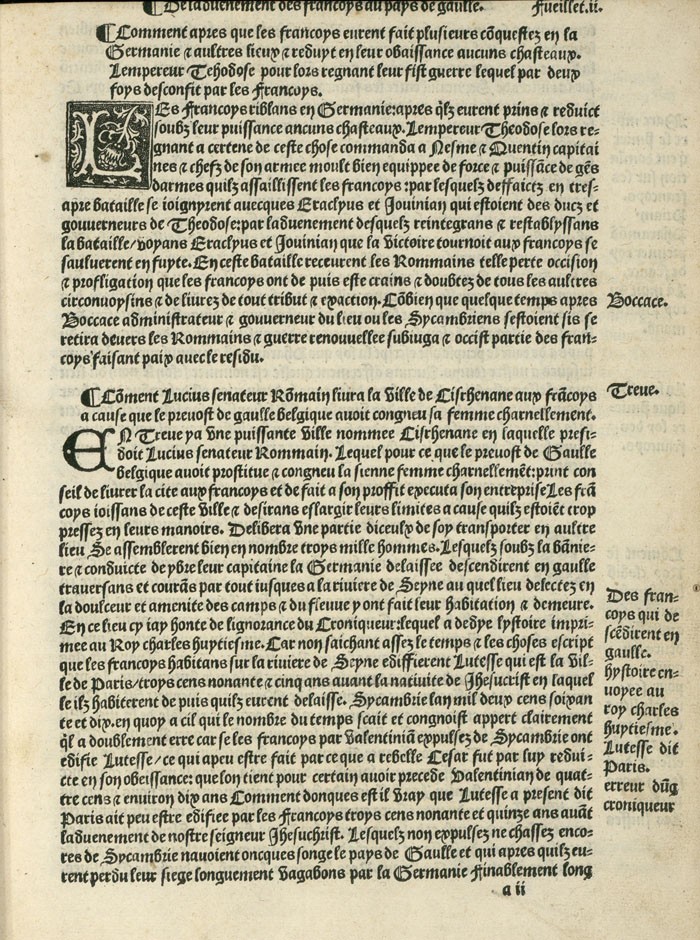 ¶De laduenement des francoys au pays de gaulle. Fueillet.ii.
¶Comment apres que les francoys eurent fait plusieurs cõquestez en la
Germanie ⁊ aultres lieux ⁊ reduyt en leur obaissance aucuns chasteaux.
Lempereur Tehodose pour lors regnant leur fist guerre lequel par deux
foys desconfit par les Francoys.
LEs Francoys riblans en Germanie:apres q̃lz eurent prins ⁊ reduict
soubz leur puissance ancuns chasteaux. Lempereur Theodose lors re-
gnant a certene de ceste chose commanda a Nesme ⁊ Quentin capitai
nes ⁊ chefz de son armee moult bien equippee de force ⁊ puissãce de gẽs
darmes quilz assaillissent les francoys :par lesquelz deffaictz en tres-
apre bataille se ioignyrent auecques Eraclyus et Jouinian qui estoient des ducz et
gouuerneurs de Theodose:par laduenement desquelz reintegrans ⁊ restablyssans
la bataille/voyans Eraclyus et Jouinian que la victoire tournoit aux francoys se
saulueren​t en fuyte. En ceste bataille receurent les Rommains telle perte occision
⁊ profligation que les francoys ont de puis este crains ⁊ doubtez de tous les aultres
circonuoysins ⁊ de liurez de tout tribut ⁊ exaction. Cõbien que quelque temps apres
Boccace administrateur ⁊ gouuerneur du lieu ou les Sycambriens sestoient sis se
retira deuers les Rommains ⁊ guerre renouuellee subiuga ⁊ occist partie des fran-
coys faisant paix auec le residu.
Boccace.
¶Cõment Lucius senateur Rõmain liura la ville de Cischenane aux frãcoys
a cause que le preuost de gaulle belgique auoit congneu sa femme charnellement.
Treue.
EN Treue ya vne puissante ville nommee Cischenane en laquelle presi-
doit Lucius senateur Rommain. Lequel pour ce que le preuost de Gaulle
belgique auoit prostitue ⁊ congneu la sienne femme charnellemẽt:print con
seil de liurer la cite aux francoys et de fait a son proffit executa son entreprise Les frã
coys ioissans de ceste ville ⁊ desirans eslargir leurs limites a cause quilz estoiẽt trop
pressez en leurs manoirs. Delibera vne partie diceulx de soy transporter en aultre
lieu Se assemblerent bien en nombre troys mille hommes. Lesquelz soubz la bãnie-
re ⁊ conduicte de ybre leur capitaine la Germanie delaissee descendirent en gaulle
trauersans et courãs par tout iusques a la riuiere de Seyne au quel lieu delectez en
la doulceur et amenite des camps ⁊ du fleuue y ont fait leur habitation ⁊ demeure.
En ce lieu cy iay honte de lignorance du Croniqueur:lequel a dedye lystoire impri-
mee au Roy charles huytiesme. Car non saichant assez le temps ⁊ les choses escript
que les francoys habitans sur la riuiere de Seyne edifierent Lutesse qui est la vil-
le de Paris/troys cens nonante ⁊ cinq ans auant la natiuite de Jhesucrist en laquel
le ilz habiterent de puis quilz eurent delaisse. Sycambrie lan mil deux cens soixan
te et dix.en quoy a cil qui le nombre du temps scait et congnoist appert clairement
q̃l a doublement erre car se les francoys par valentiniã expulsez de Sycambrie ont
edifie Lutesse/ce qui apeu estre fait par ce que a rebelle Cesar fut par luy redui-
cte en son obeissance: que lon tient pour certain auoir precede Valentinian de quat-
tre cens ⁊ enuiron dix ans Comment donques est il vray que Lutesse a present dit
Paris ait peu estre edifiee par les Francoys troys cens nonante et quinze ans auãt
laduenement de nostre seigneur Jhesuchrist. Lesquelz non expulsez ne chassez enco-
res de Sycambrie nauoient oncques songe le pays de Gaulle et qui apres quilz eu-
rent perdu leur siege longuement vagabons par la Germanie Finablement long
Des fran-
coys qui de
scẽdirent en
gaulle.
hystoire en-
uoyee au
roy charles
huytiesme.
Lutesse dit
Paris.
erreur dũg
croniqueur
a ii